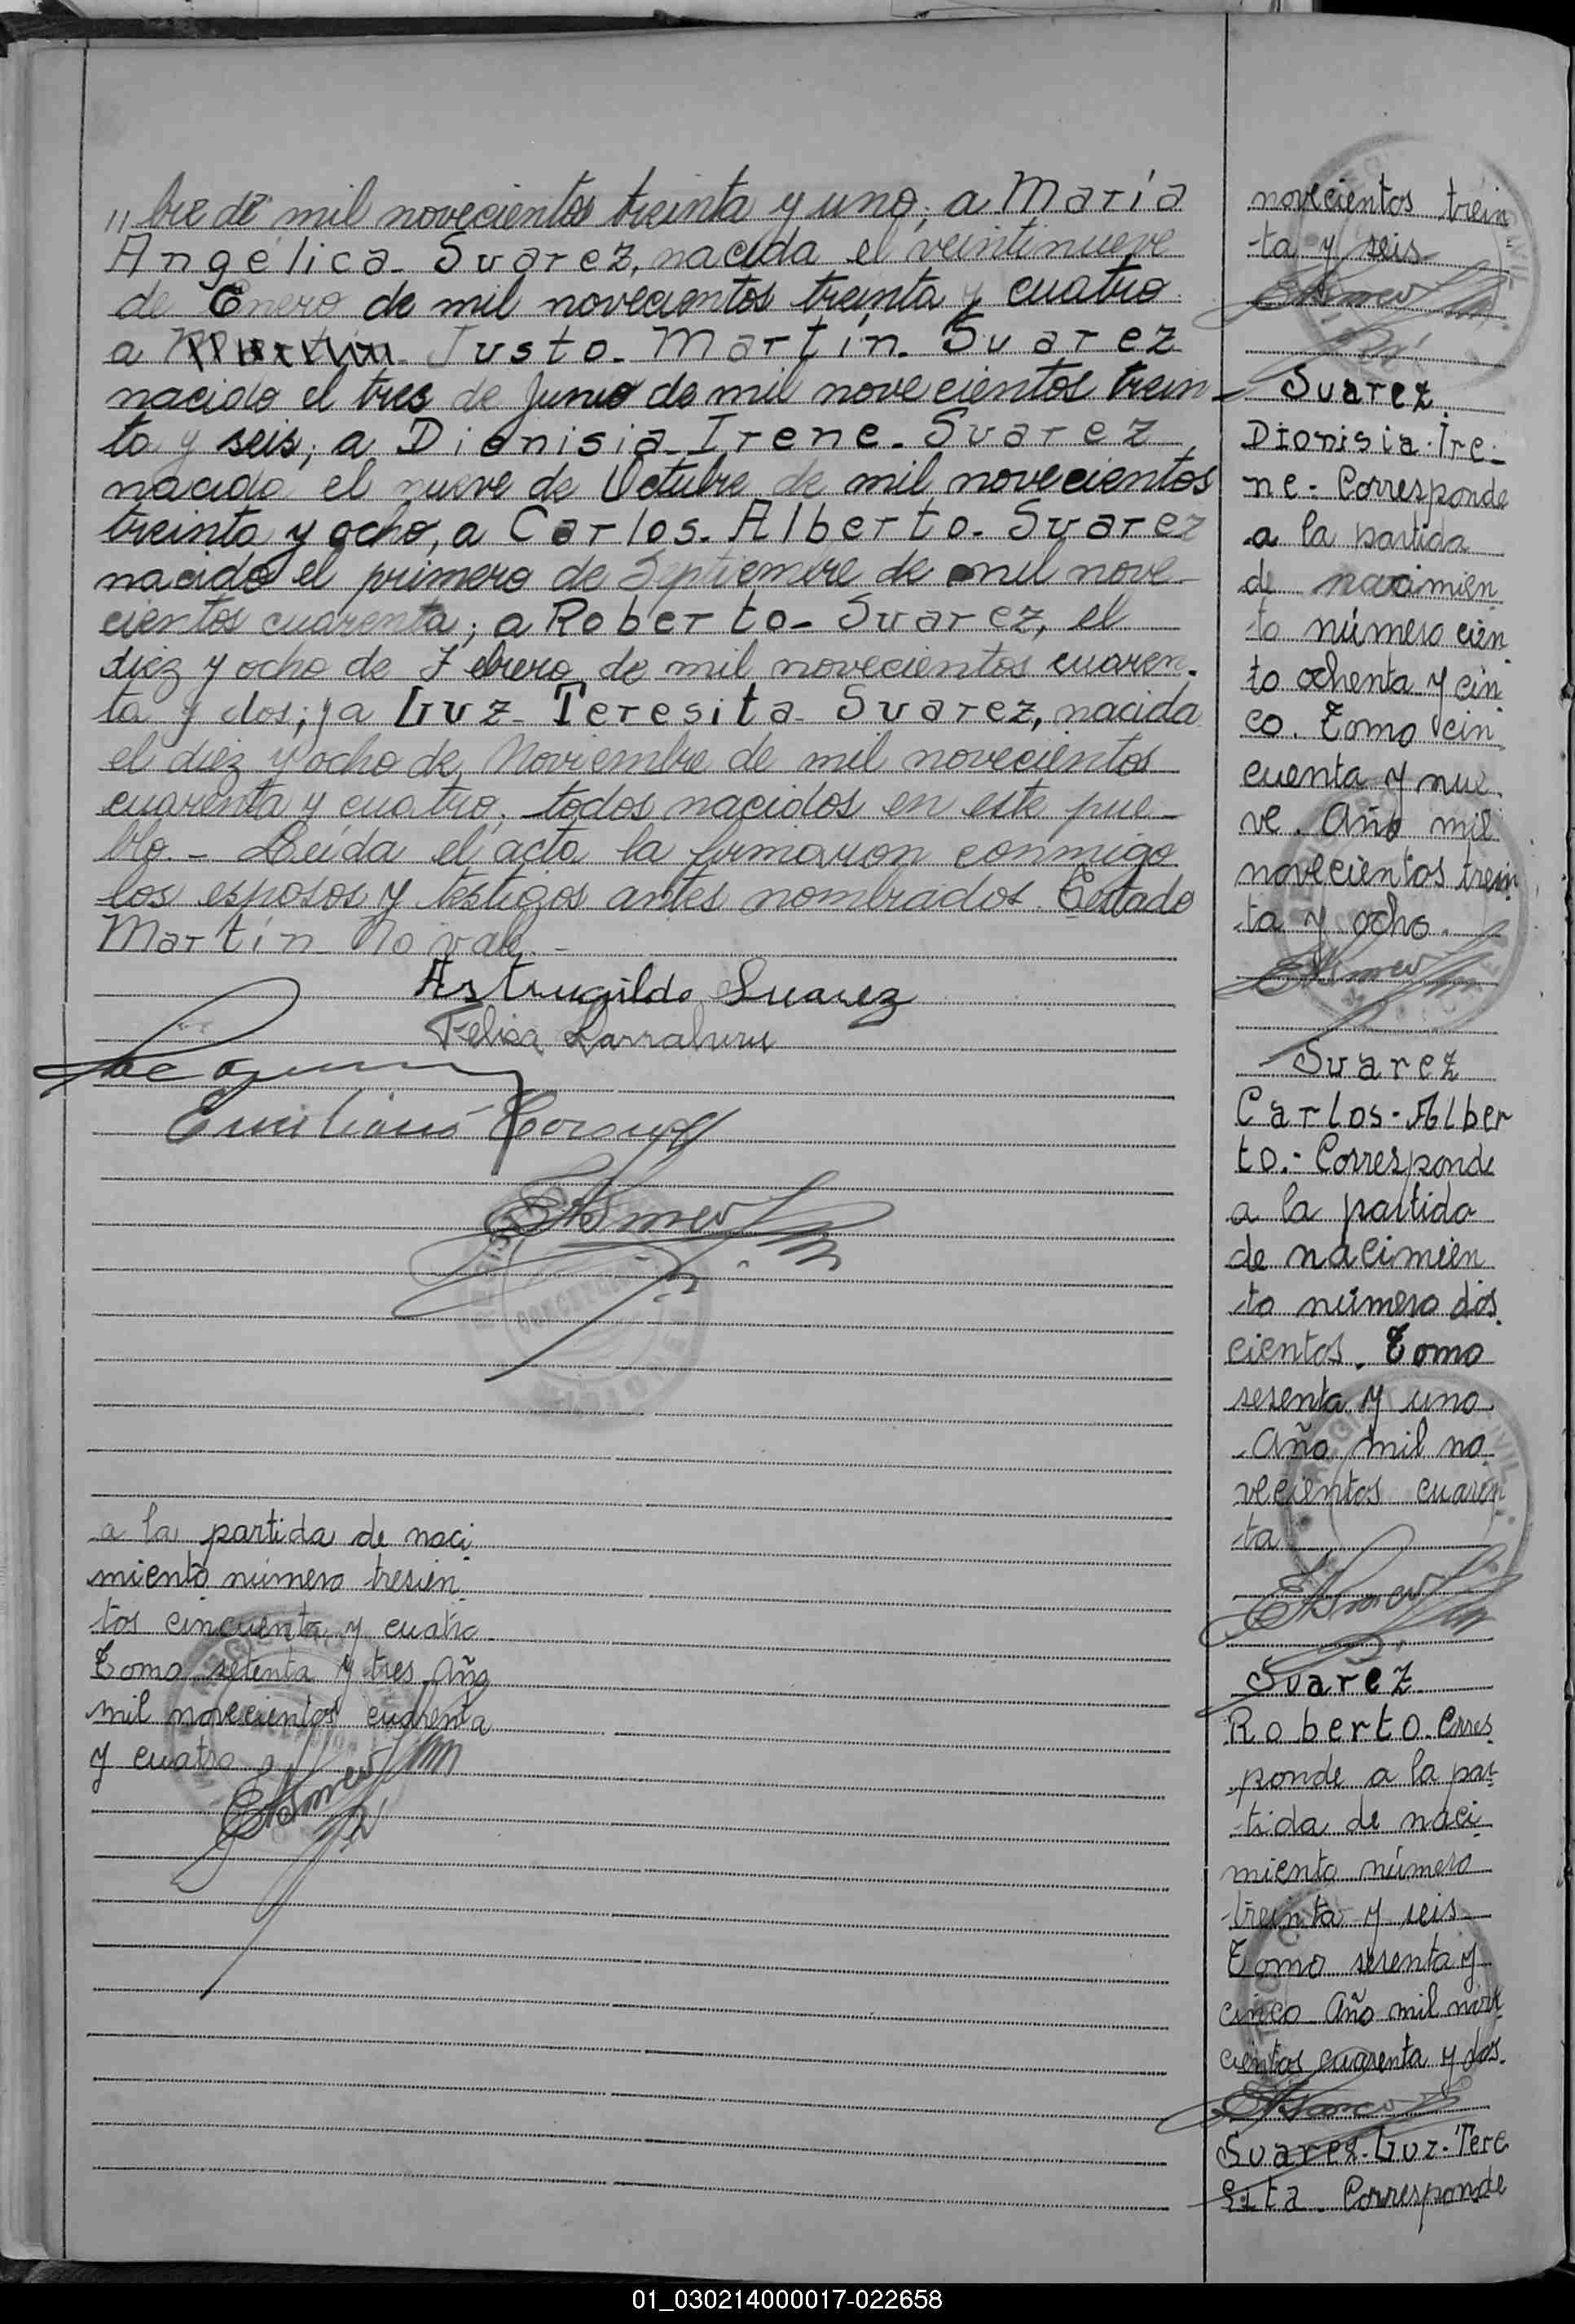 " bre de mil novecientos treinta y uno; a María
Angélica Suarez, nacida el veintinueve
de Enero de mil novecientos treinta y cuatro
a Martín Justo Martín Suarez
nacido el tres de Junio de mil novecientos trein-
ta y seis; a Dionisia Irene Suarez
nacida el nueve de Octubre de mil novecientos
treinta y ocho, a Carlos Alberto Suarez
nacido el primero de Septiembre de mil nove-
cientos cuarenta; a Roberto Suarez, el
diez y ocho de Febrero de mil novecientos cuaren-
ta y dos; y a Luz Teresita Suarez, nacida
el diez y ocho de Noviembre de mil novecientos
cuarenta y cuatro, todos nacidos en este pue-
blo.- Leída el acta la firmaron conmigo
los esposos y testigos antes nombrados. Testado
Martín No vale.-
Astrugildo Suarez
Felisa Larralburu
Emiliano
a la partida de naci
miento número tresien
tos cincuenta y cuatro
Tomo setenta y tres Año
mil novecientos cuarenta
y cuatro
novecientos trein
ta y seis
Suarez
Dionisia Ire-
ne- Corresponde
a la partida
de nacimien
to número cien
to ochenta y cin
co. Tomo cin
cuenta y nue
ve. Año mil
novecientos trein
ta y ocho.
Suarez
Carlos-Alber
to.- Corresponde
a la partida
de nacimien
to número dos
cientos. Tomo
sesenta y uno
Año mil no
vecientos cuaren
ta
Suarez
Roberto. Corres
ponde a la par
tida de naci
miento número
treinta y seis
Tomo sesenta y
cinco Año mil nove
cientos cuarenta y dos.
Suarez-Luz-Tere
sita. Corresponde
01_030214000017-022658